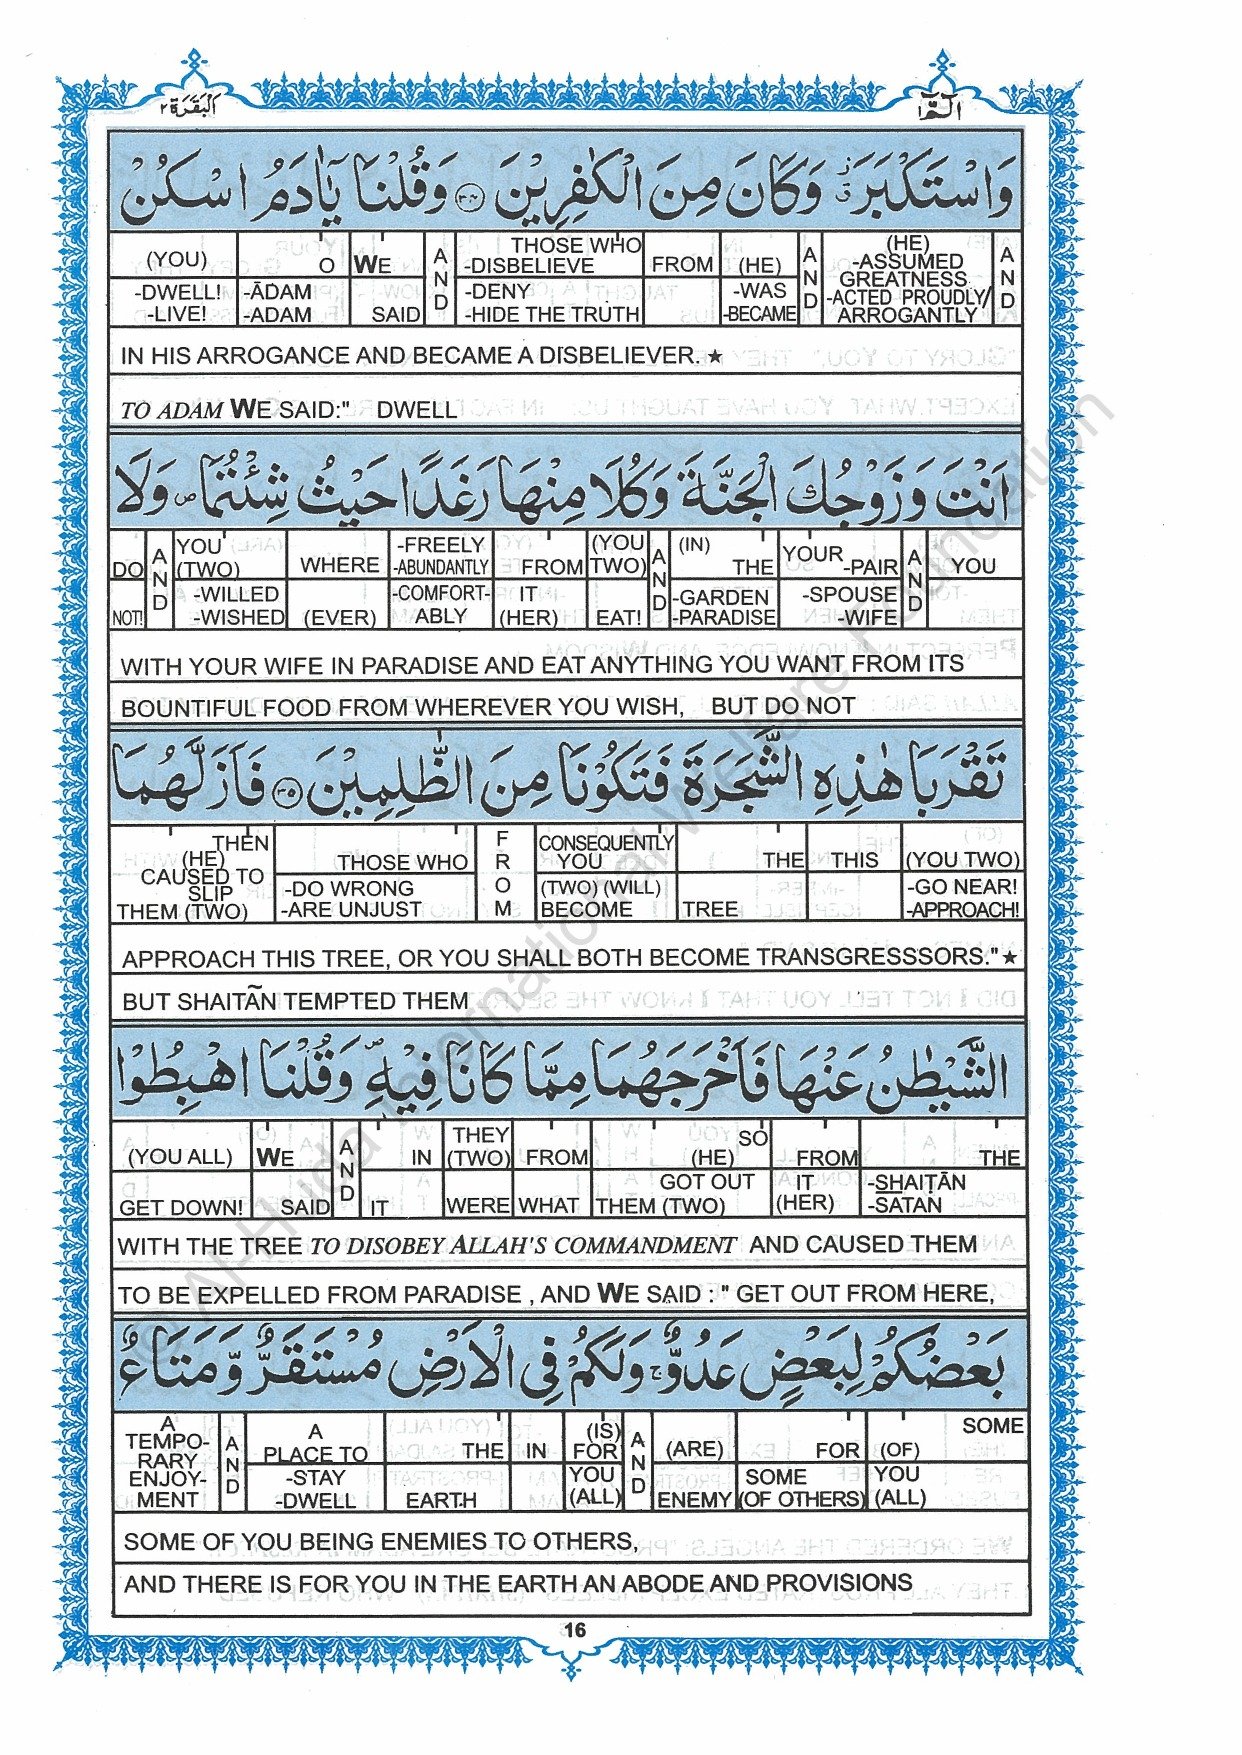 البقرة ٢
الٓمّٓ ١
وَاسْتَكْبَرَ ۗ وَكَانَ مِنَ الْكٰفِرِيْنَ ۝٣٤ وَقُلْنَا يٰٓاٰدَمُ اسْكُنْ
(YOU) O WE AND THOSE WHO -DISBELIEVE FROM (HE) AND (HE) -ASSUMED GREATNESS AND
-DWELL! -LIVE! -ĀDAM -ADAM SAID -DENY -HIDE THE TRUTH -WAS -BECAME -ACTED PROUDLY/ ARROGANTLY
IN HIS ARROGANCE AND BECAME A DISBELIEVER. ★
TO ADAM WE SAID:" DWELL
اَنْتَ وَزَوْجُكَ الْجَنَّةَ وَكُلَا مِنْهَا رَغَدًا حَيْثُ شِئْتُمَا ۖ وَلَا
DO AND YOU (TWO) WHERE -FREELY -ABUNDANTLY FROM (YOU TWO) AND (IN) THE YOUR -PAIR AND YOU
NOT! -WILLED -WISHED (EVER) -COMFORT- ABLY IT (HER) EAT! -GARDEN -PARADISE -SPOUSE -WIFE
WITH YOUR WIFE IN PARADISE AND EAT ANYTHING YOU WANT FROM ITS
BOUNTIFUL FOOD FROM WHEREVER YOU WISH, BUT DO NOT
تَقْرَبَا هٰذِهِ الشَّجَرَةَ فَتَكُوْنَا مِنَ الظّٰلِمِيْنَ ۝٣٥ فَاَزَلَّهُمَا
THEN (HE) CAUSED TO SLIP THEM (TWO) THOSE WHO FROM CONSEQUENTLY YOU THE THIS (YOU TWO)
-DO WRONG -ARE UNJUST (TWO) (WILL) BECOME TREE -GO NEAR! -APPROACH!
APPROACH THIS TREE, OR YOU SHALL BOTH BECOME TRANSGRESSSORS." ★
BUT SHAITÃN TEMPTED THEM
الشَّيْطٰنُ عَنْهَا فَاَخْرَجَهُمَا مِمَّا كَانَا فِيْهِ ۪ وَقُلْنَا اهْبِطُوْا
(YOU ALL) WE AND IN THEY (TWO) FROM SO (HE) FROM THE
GET DOWN! SAID IT WERE WHAT GOT OUT THEM (TWO) IT (HER) -SHAITĀN -SATAN
WITH THE TREE TO DISOBEY ALLAH'S COMMANDMENT AND CAUSED THEM
TO BE EXPELLED FROM PARADISE , AND WE SAID : " GET OUT FROM HERE,
بَعْضُكُمْ لِبَعْضٍ عَدُوٌّ ۚ وَلَكُمْ فِى الْاَرْضِ مُسْتَقَرٌّ وَّمَتَاعٌ
A TEMPO- RARY ENJOY- MENT AND A PLACE TO THE IN (IS) FOR AND (ARE) FOR (OF) SOME
-STAY -DWELL EARTH YOU (ALL) ENEMY SOME (OF OTHERS) YOU (ALL)
SOME OF YOU BEING ENEMIES TO OTHERS,
AND THERE IS FOR YOU IN THE EARTH AN ABODE AND PROVISIONS
16
© Al-Huda International Welfare Foundation